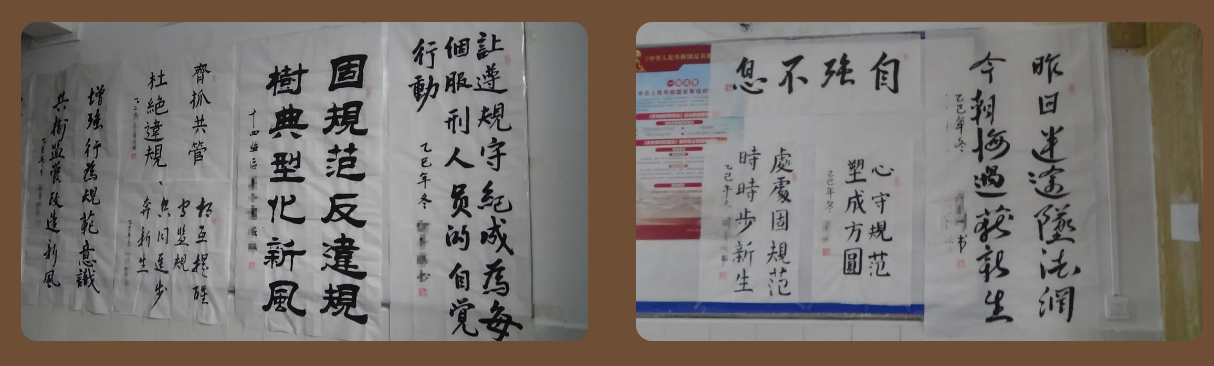 讓遵規守紀成為每
個服刑人员的自覺
行動
乙巳年冬
固規范反違規
樹典型化新風
十四监区
齊抓共管
杜絕違規
相互提醒
守監規
共同進步
奔新生
增強行為規範意識
共樹監管改造新風
自強不息
昨日迷途墜法網
今朝悔過蘄新生
乙巳年冬
心守規范
塑成方圓
乙巳年冬
處處固規范
時時步新生
乙巳年冬